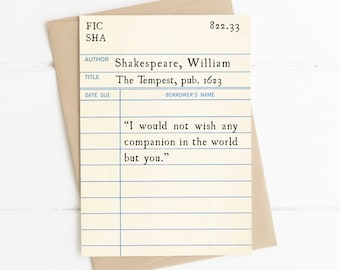 FIC 822.33
SHA
AUTHOR Shakespeare, William
TITLE The Tempest, pub. 1623
DATE DUE BORROWER'S NAME
“I would not wish any
companion in the world
but you.”